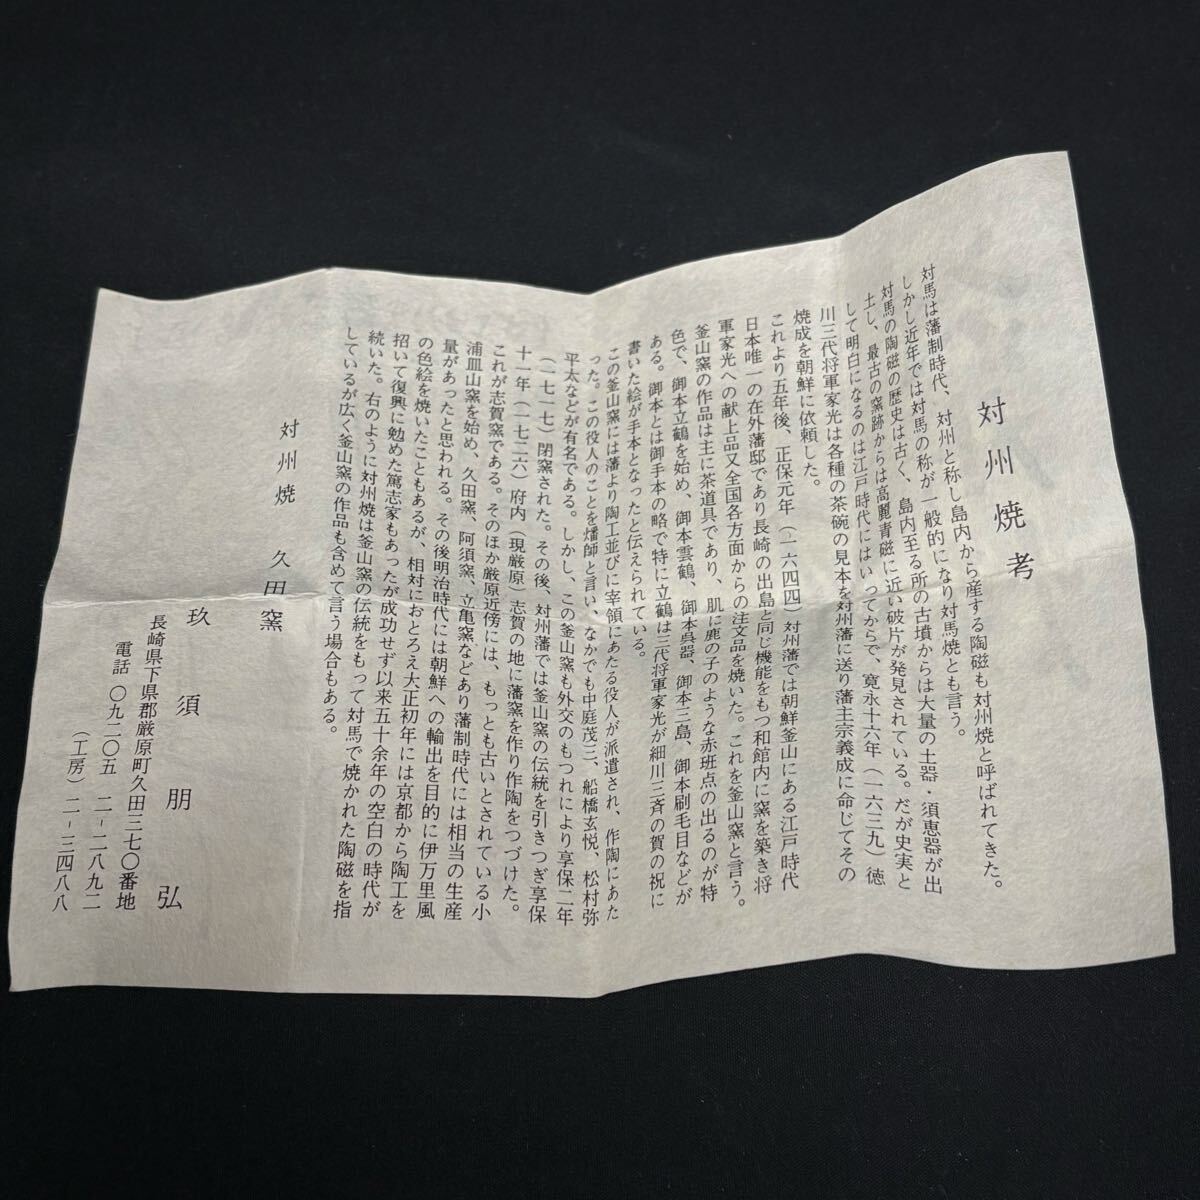 対州焼考
対馬は藩制時代、対州と称し島内から産する陶磁も対州焼と呼ばれてきた。
しかし近年では対馬の称が一般的になり対馬焼とも言う。
対馬の陶磁の歴史は古く、島内至る所の古墳からは大量の土器・須恵器が出
土し、最古の窯跡からは高麗青磁に近い破片が発見されている。だが史実と
して明白になるのは江戸時代にはいってからで、寛永十六年（一六三九）徳
川三代将軍家光は各種の茶碗の見本を対州藩に送り藩主宗義成に命じてその
焼成を朝鮮に依頼した。
これより五年後、正保元年（一六四四）対州藩では朝鮮釜山にある江戸時代
日本唯一の在外藩邸であり長崎の出島と同じ機能をもつ和館内に窯を築き将
軍家光への献上品又全国各方面からの注文品を焼いた。これを釜山窯と言う。
釜山窯の作品は主に茶道具であり、肌に鹿の子のような赤班点の出るのが特
色で、御本立鶴を始め、御本雲鶴、御本呉器、御本三島、御本刷毛目などが
ある。御本とは御手本の略で特に立鶴は三代将軍家光が細川三斉の賀の祝に
書いた絵が手本となったと伝えられている。
この釜山窯には藩より陶工並びに宰領にあたる役人が派遣され、作陶にあた
った。この役人のことを燔師と言い、なかでも中庭茂三、船橋玄悦、松村弥
平太などが有名である。しかし、この釜山窯も外交のもつれにより享保二年
（一七一七）閉窯された。その後、対州藩では釜山窯の伝統を引きつぎ享保
十一年（一七二六）府内（現厳原）志賀の地に藩窯を作り作陶をつづけた。
これが志賀窯である。そのほか厳原近傍には、もっとも古いとされている小
浦皿山窯を始め、久田窯、阿須窯、立亀窯などあり藩制時代には相当の生産
量があったと思われる。その後明治時代には朝鮮への輸出を目的に伊万里風
の色絵を焼いたこともあるが、相対におとろえ大正初年には京都から陶工を
招いて復興に勉めた篤志家もあったが成功せず以来五十余年の空白の時代が
続いた。右のように対州焼は釜山窯の伝統をもって対馬で焼かれた陶磁を指
しているが広く釜山窯の作品も含めて言う場合もある。
対州焼　久田窯
玖須朋弘
長崎県下県郡厳原町久田三七〇番地
電話　〇九二〇五　二-二八九二
（工房）二-三四八八